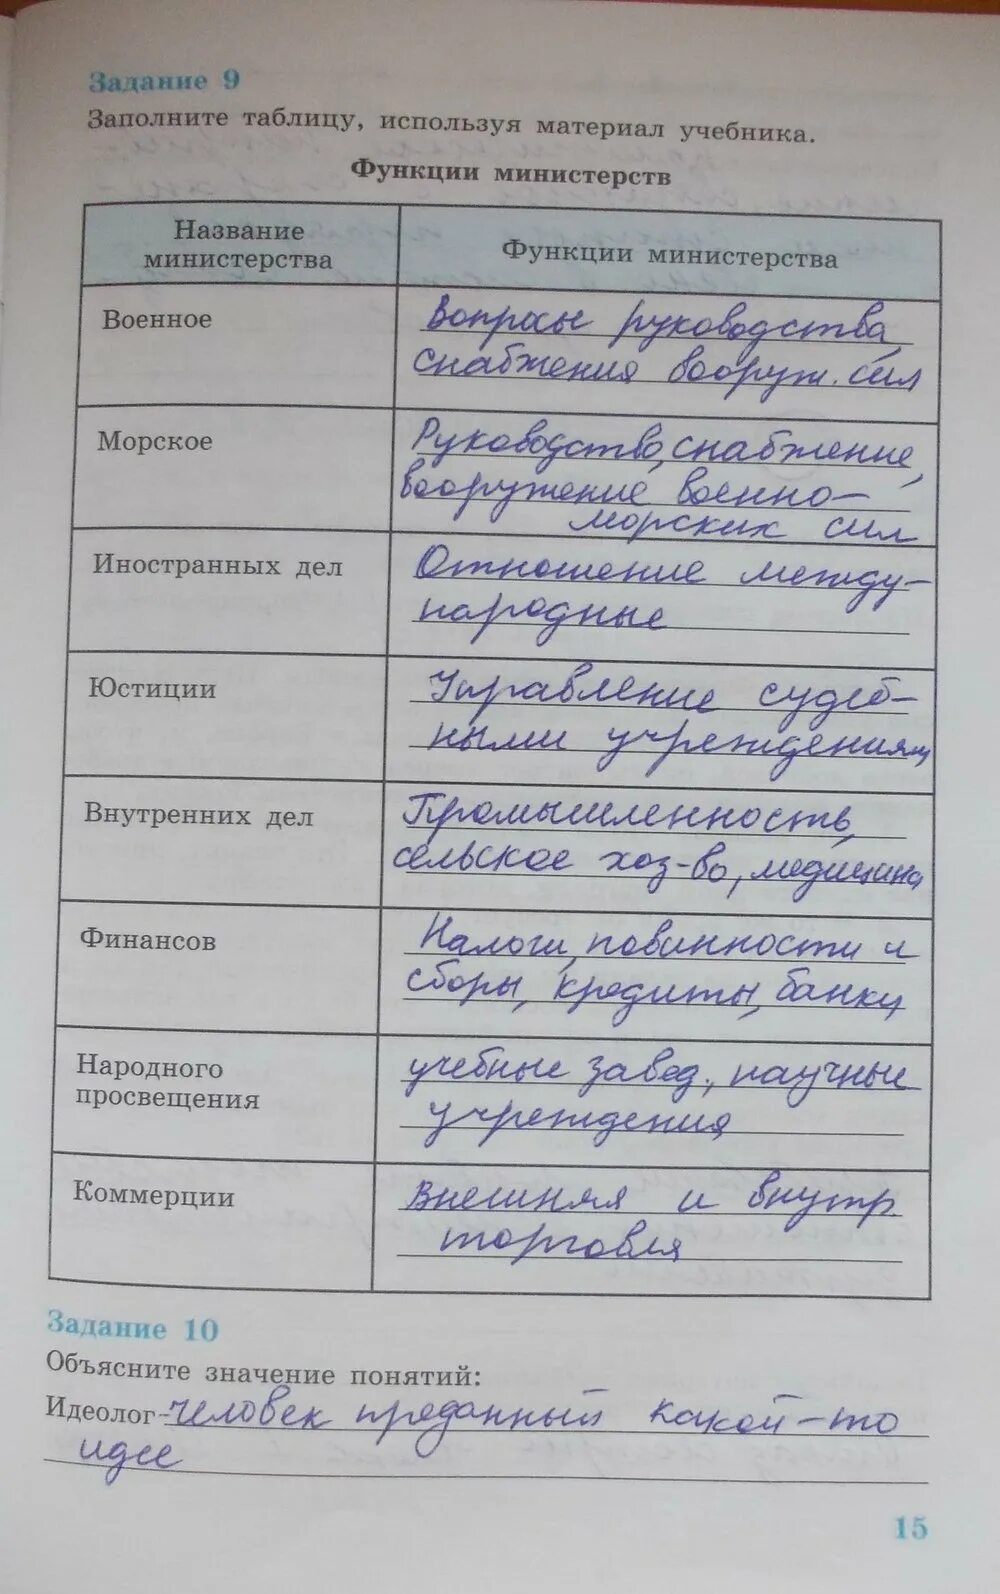 Задание 9
Заполните таблицу, используя материал учебника.
Функции министерств
Название
министерства
Функции министерства
Военное
Вопросы руководства,
снабжения вооруж. сил
Морское
Руководство, снабжение,
вооружение военно-
морских сил
Иностранных дел
Отношение между-
народные
Юстиции
Управление судеб-
ными учреждениями
Внутренних дел
Промышленность,
сельское хоз-во, медицина
Финансов
Налоги, повинности и
сборы, кредиты, банки
Народного
просвещения
учебные завед., научные
учреждения
Коммерции
Внешняя и внутр.
торговля
Задание 10
Объясните значение понятий:
Идеолог - человек преданный какой-то
идее
15